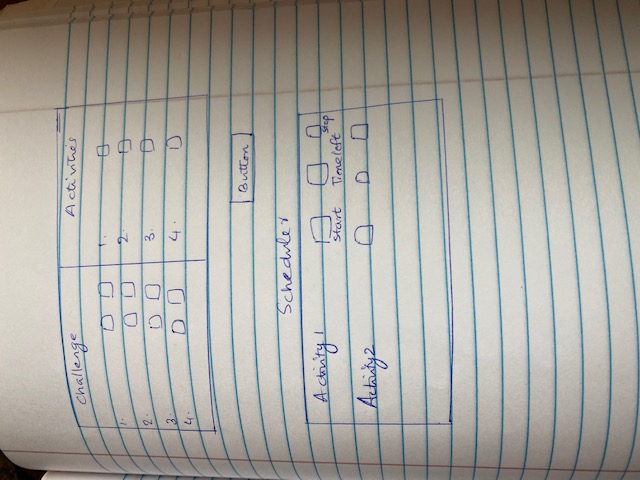 Challenge
1.
2.
3.
4.
Activities
1.
2.
3.
4.
Button
Scheduler
Activity 1
Start Time left Stop
Activity 2